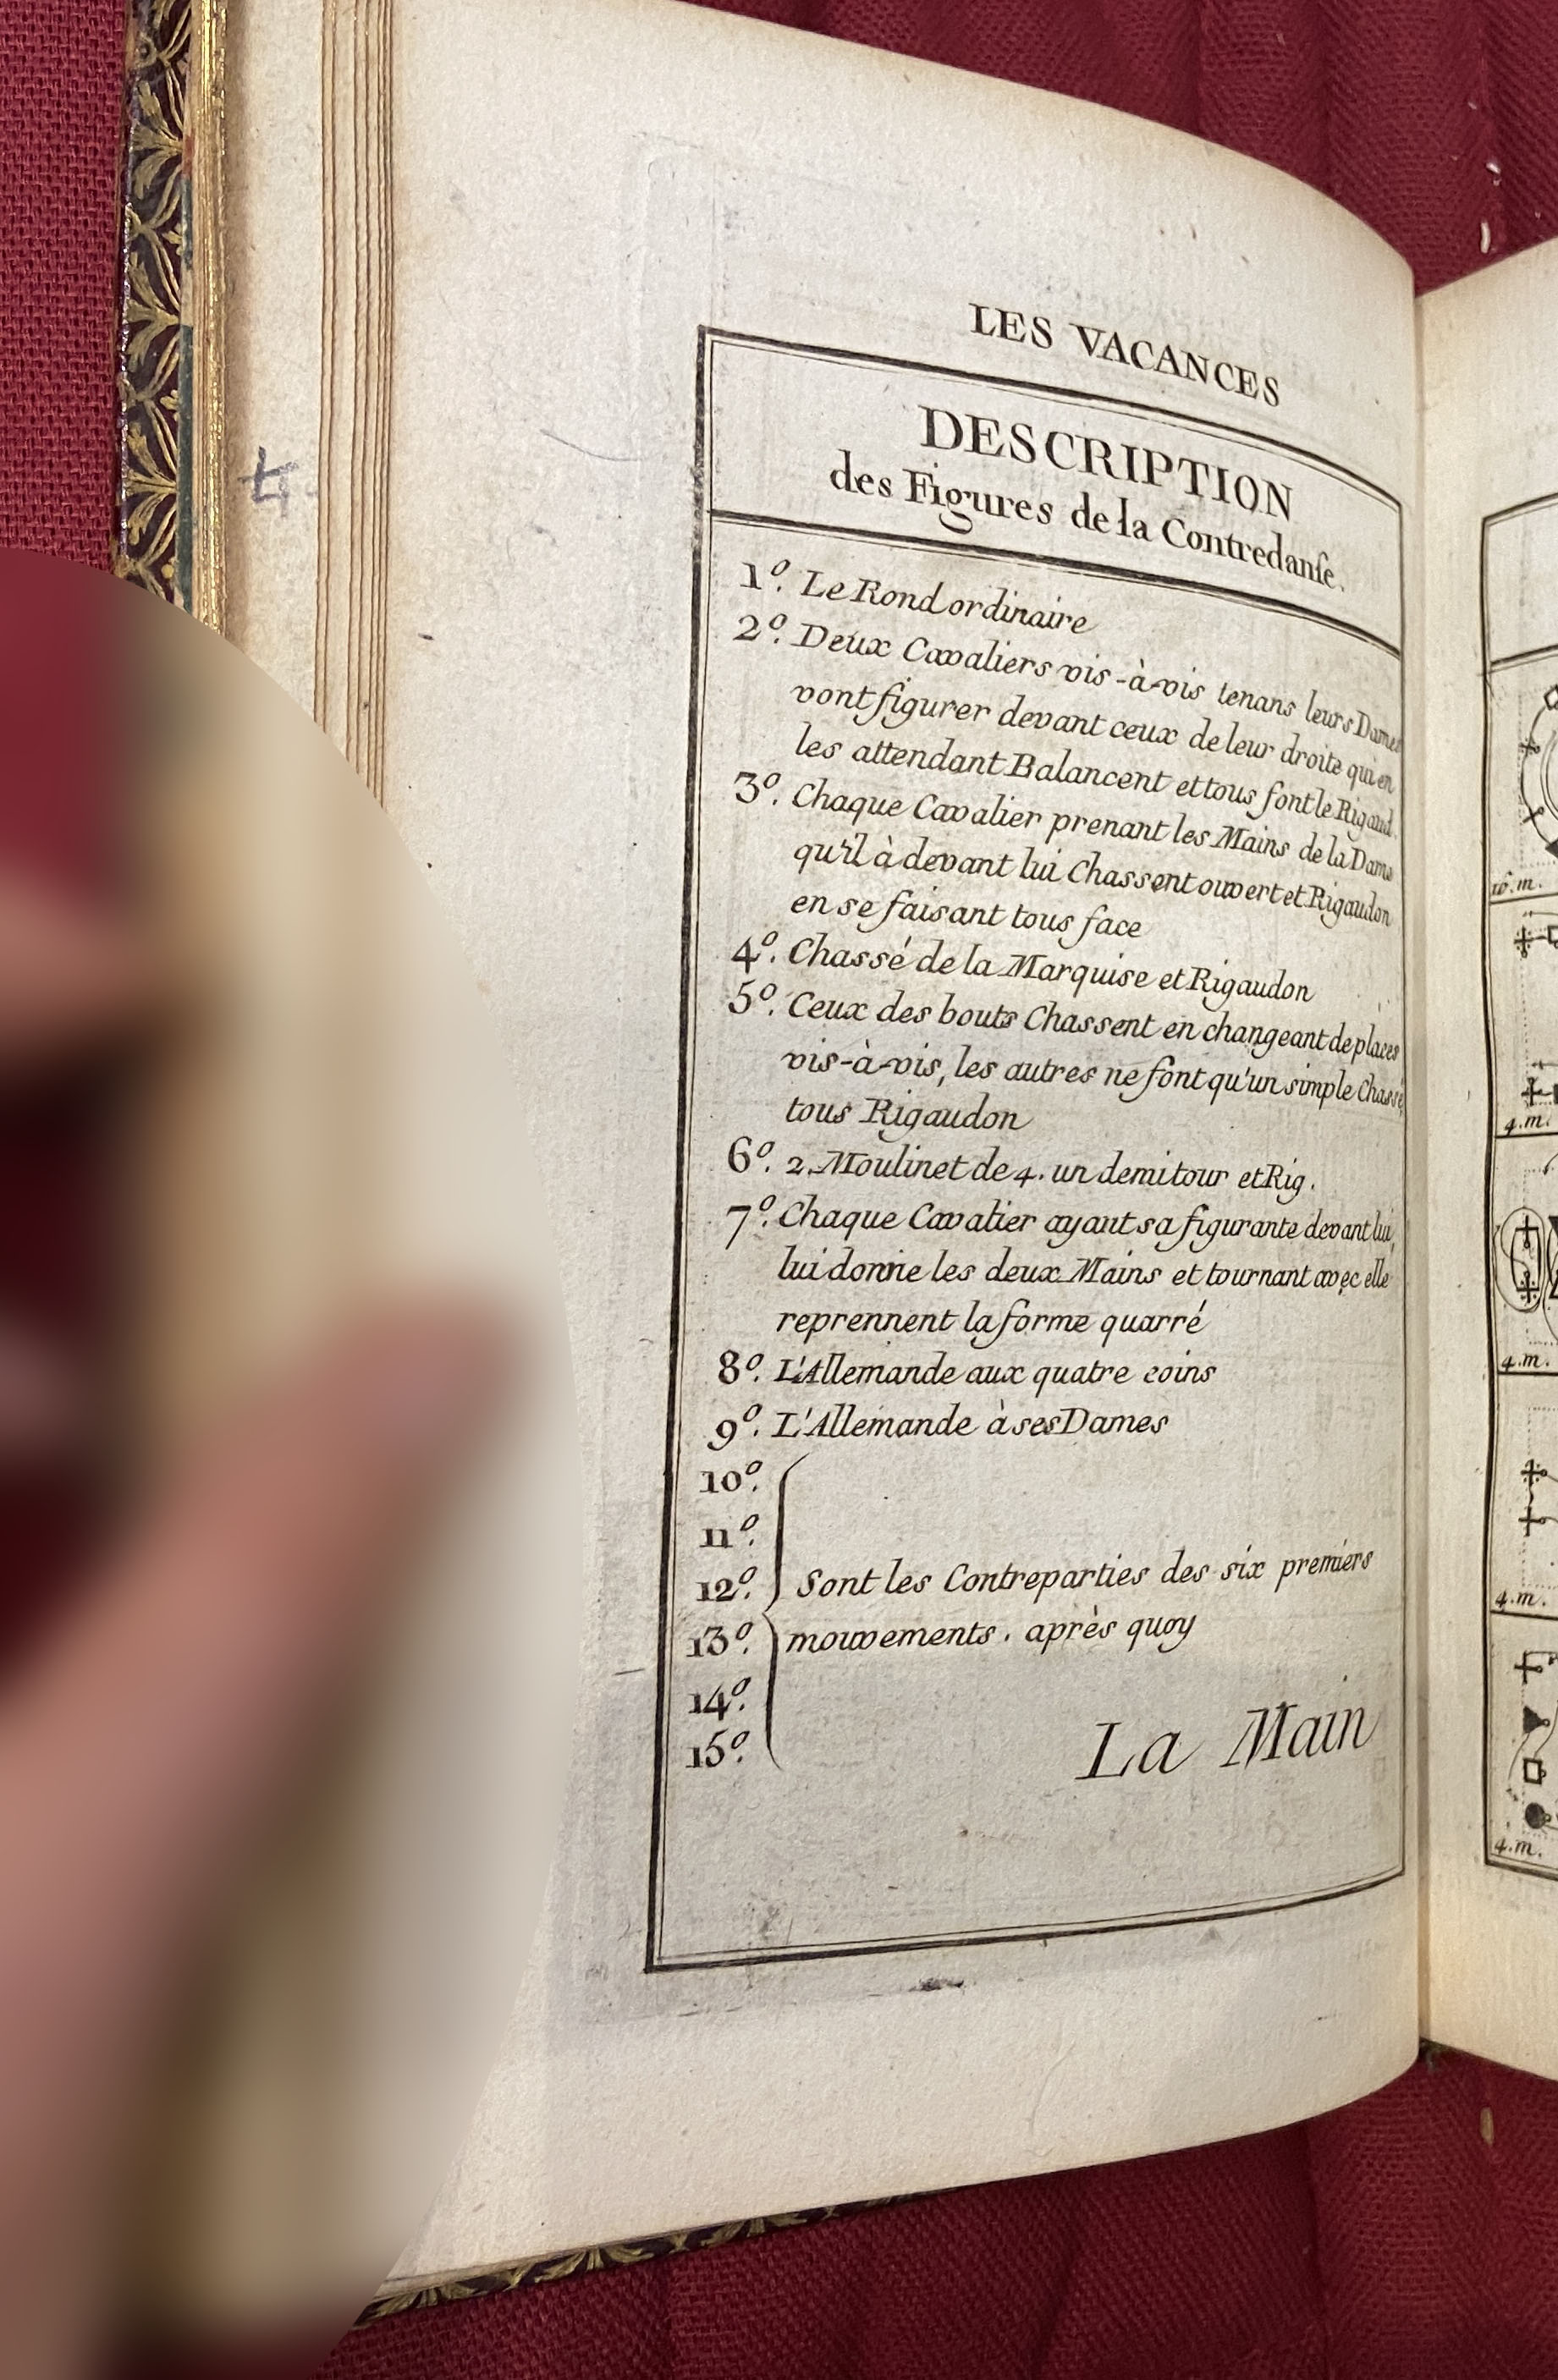 LES VACANCES
DESCRIPTION
des Figures de la Contredanſe.
1º. Le Rond ordinaire
2º. Deux Cavaliers vis-à-vis tenans leurs Dames
vont figurer devant ceux de leur droite qui en
les attendant Balancent et tous font le Rigaud.
3º. Chaque Cavalier prenant les Mains de la Dame
qu'il à devant lui Chassent ouvert et Rigaudon
en se faisant tous face
4º. Chassé de la Marquise et Rigaudon
5º. Ceux des bouts Chassent en changeant de places
vis-à-vis, les autres ne font qu'un simple Chassé,
tous Rigaudon
6º. 2. Moulinet de 4. un demi tour et Rig.
7º. Chaque Cavalier ayant sa figurante devant lui,
lui donne les deux Mains et tournant avec elle
reprennent la forme quarré
8º. L'Allemande aux quatre coins
9º. L'Allemande à ses Dames
10º.
11º.
12º. Sont les Contreparties des six premiers
13º. mouvements. après quoy
14º.
15º.
La Main
4.m.
4.m.
4.m.
4.m.